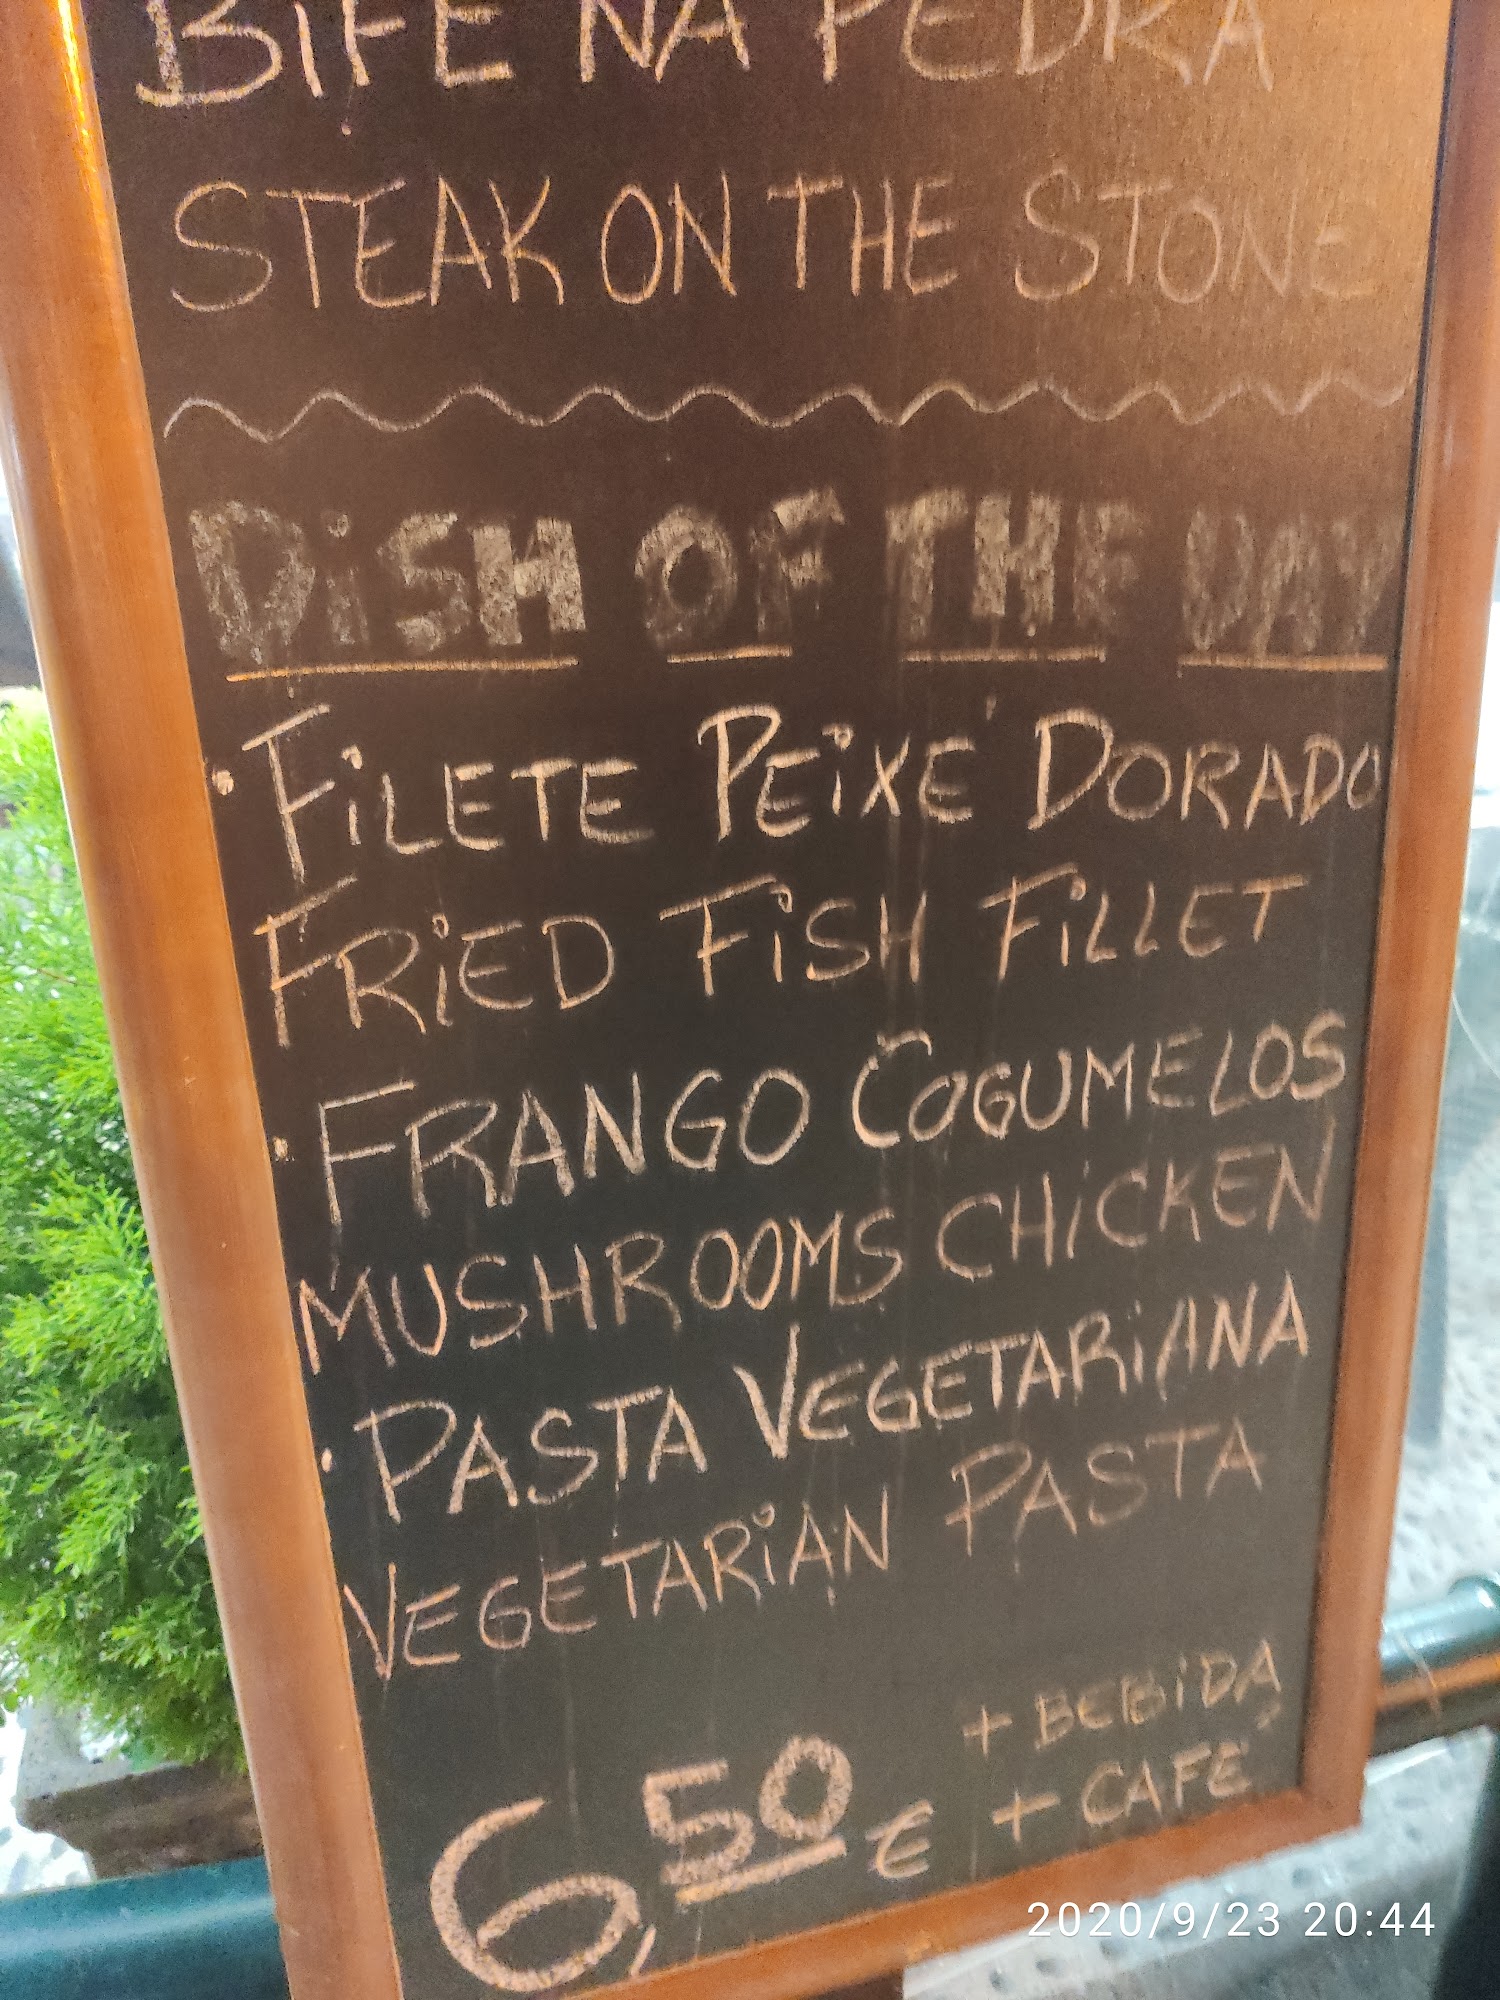 BIFE NA PEDRA
STEAK ON THE STONE
DiSH OF THE DAY
· FiLETE PEiXE' DORADO
FRiED FiSH FiLLET
· FRANGO COGUMELOS
MUSHROOMS CHiCKEN
· PASTA VEGETARiANA
VEGETARiAN PASTA
+ BEBiDA
6,50 € + CAFÉ
2020/9/23 20:44